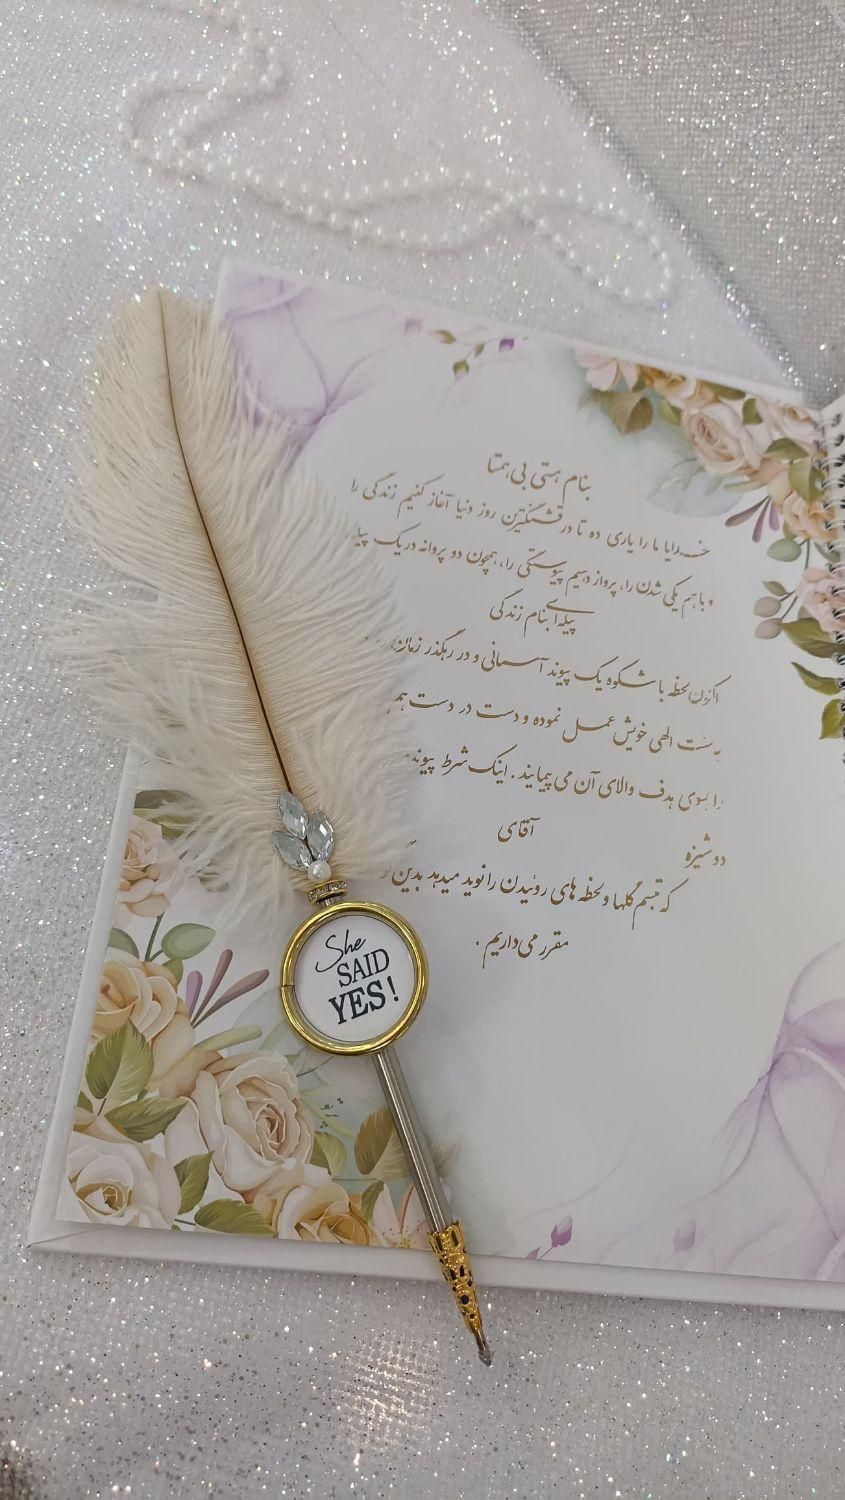 بنام هستی بی همتا
خدایا ما را یاری ده تا در قشنگترین روز دنیا آغاز کنیم زندگی را
و با هم یکی شدن را، پرواز دهیم پیوستگی را، همچون دو پروانه در یک پیله
پیله ای بنام زندگی
اکنون لحظه با شکوه یک پیوند آسمانی و در رهگذر زمان
به سنت الهی خویش عمل نموده و دست در دست هم
را بسوی هدف والای آن می پیمایند . اینک شرط پیوند
دوشیزه آقای
که تبسم گلها و لحظه های روئیدن را نوید میدهد بدین
مقرر می داریم .
She
SAID
YES!